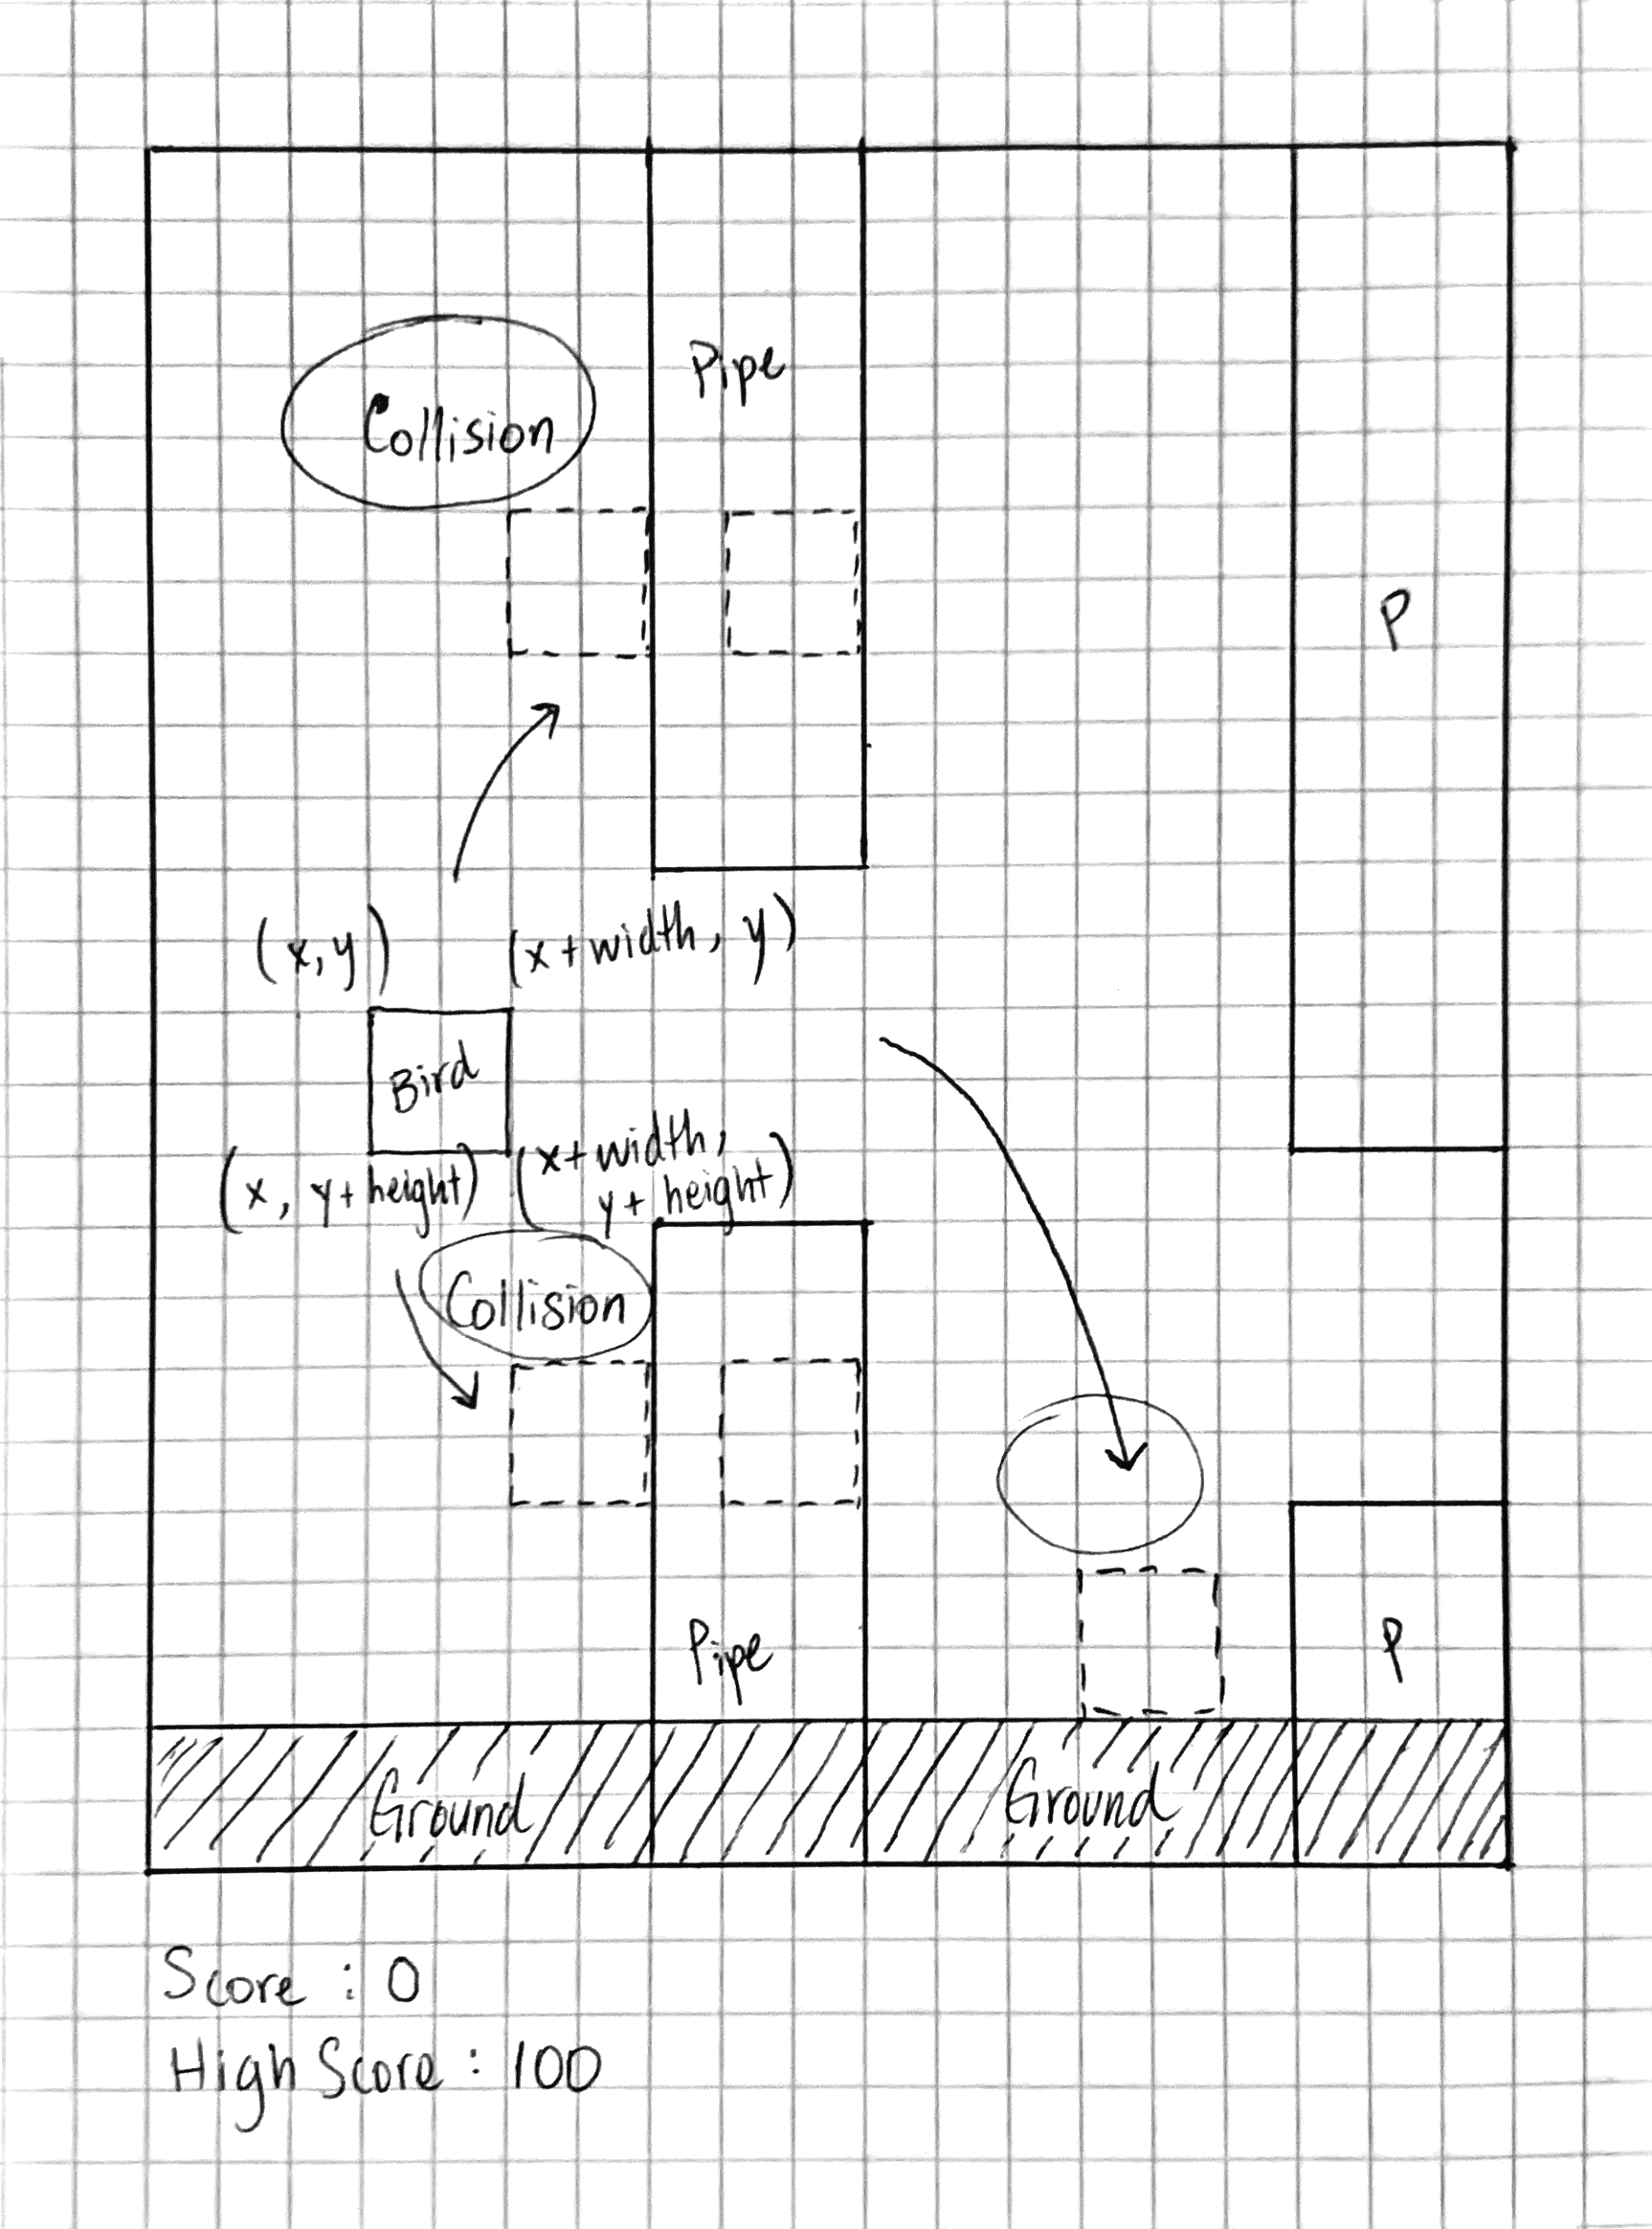 Pipe
Collision
P
(x, y)
(x + width, y)
Bird
(x, y + height)
(x + width,
y + height)
Collision
Pipe
P
Ground
Ground
Score : 0
High Score : 100